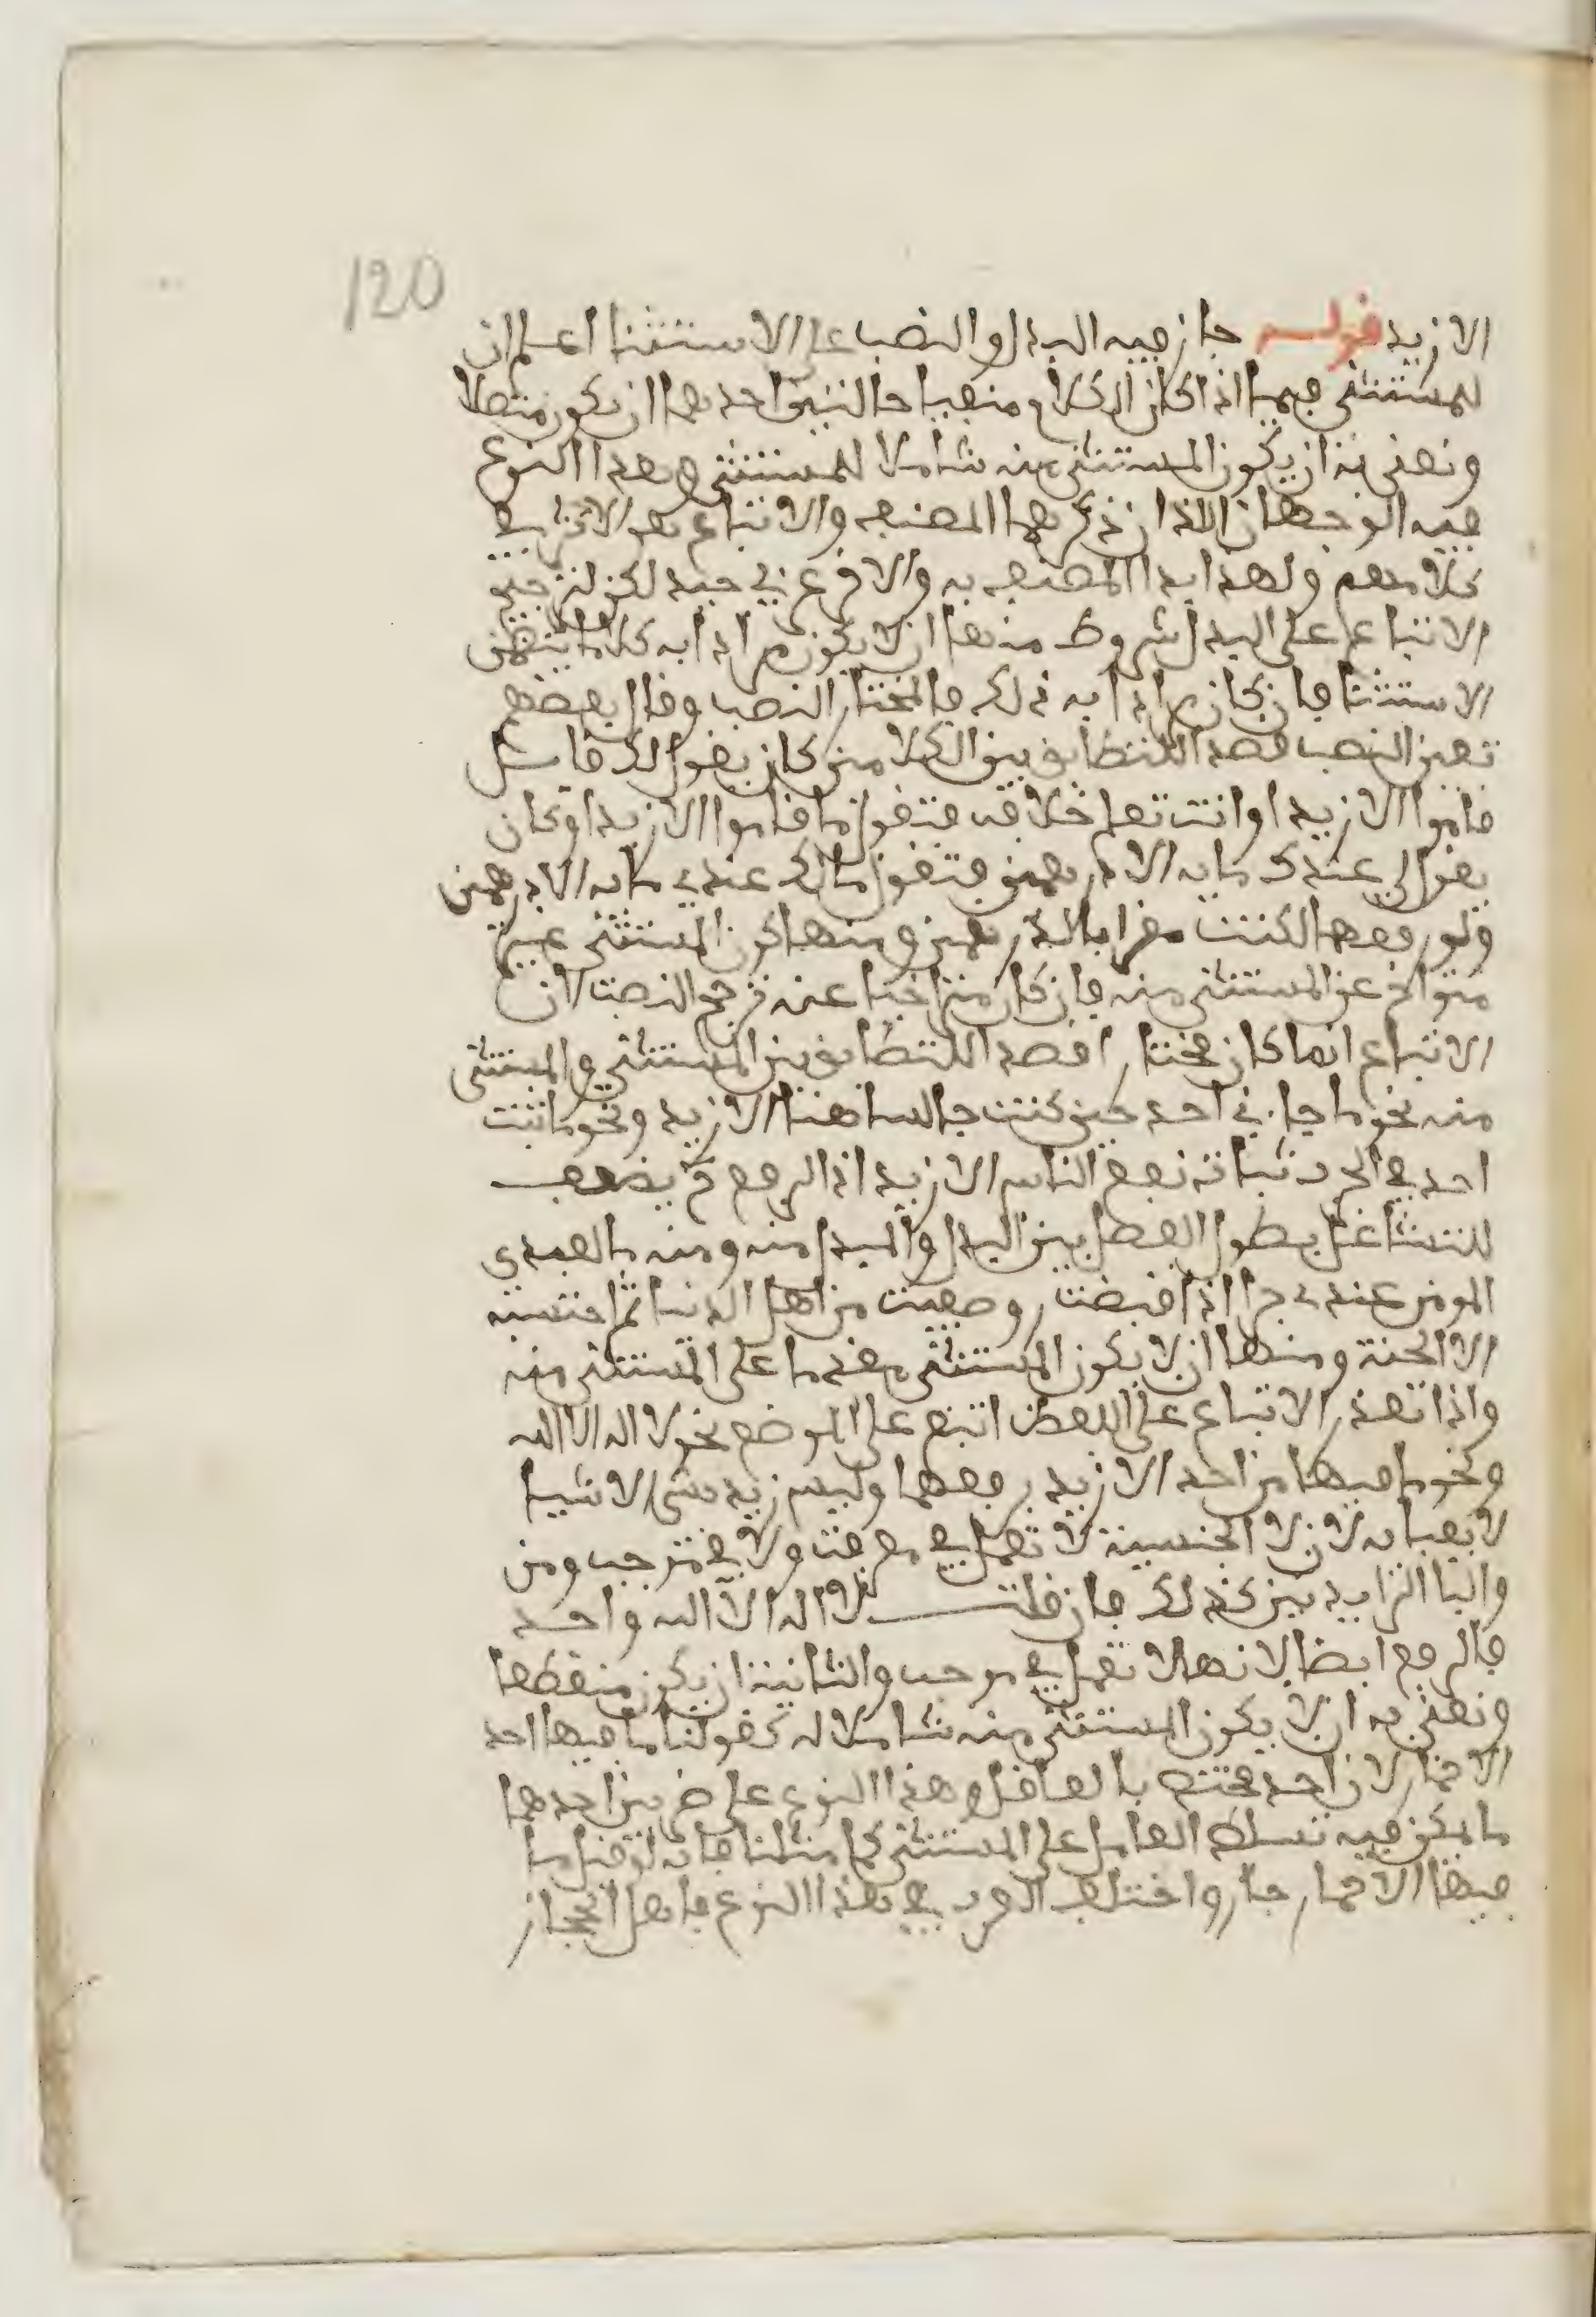 120
الا زيد قوله جاز فيه البدل والنصب على الاستثنا اعلم ان
للمستثنى فيما اذا كان الكلام منفيا حالتين احدهما ان يكون متصلا
ونعني به ان يكون المستثنى منه شاملا للمستثنى وهذا النوع
فيه الوجهان اللذان ذكرهما المصنف والاتباع هو الاكثر في
كلامهم ولهذا بدا المصنف به والاخر عربي جيد لكن لترجيح
الاتباع على البدل شروط منها ان لا يكون مرادا به كلاما يتضمن
الاستثنا فان كان مرادا به ذلك فالمختار النصب وقال بعضهم
تعين النصب قصد اللتطابق بين الكلامين كان يقول لك قايل
قاموا الا زيدا وانت تعلم خلافه فتقول ما قاموا الا زيدا وكان
يقول لي عندك مايه الا درهمين فتقول ما لك عندي مايه الا درهمين
ولو رفعها لكنت مقرا بالدرهمين ومنها كون المستثنى غير
متراخ عن المستثنى منه فان كان متراخيا عنه ترجح النصب لان
الاتباع انما كان مختارا قصد اللتطابق بين المستثنى والمستثنى
منه نحو ما جاني احد حين كنت جالسا هنا الا زيد ونحو ما ثبت
احد في الحرب ثباتا نفع الناس الا زيد اذ الرفع يضعف
للتشاغل بطول الفصل بين البدل والمبدل منه ومنه ما لعبدي
المومن عندي جزا اذا قبضت صفيت من اهل الدنيا ثم احتسبه
الا الجنة ومنها ان لا يكون المستثنى مقدما على المستثنى منه
واذا تعذر الاتباع على اللفظ اتبع على الموضع نحو لا اله الا الله
ونحو ما فيها من احد الا زيد برفعهما وليس زيد بشي الا شيا
لا يعبا به لان لا الجنسية لا تعمل في معرفة ولا في موجب ومن
والبا الزايدتين كذلك فان قلت لا اله الا اله واحد
فالرفع ايضا لانها لا تعمل في موجب والثانية ان يكون منقطعا
ونعني به ان لا يكون المستثنى منه شاملا له كقولنا ما فيها احد
الا حمار لان احد مختص بالعاقل وهذا النوع على ضربين احدهما
ما يمكن فيه تسلط العامل على المستثنى كما مثلنا فانه لو قيل ما
فيها الا حمار جاز واختلف العرب في هذا النوع فاهل الحجاز